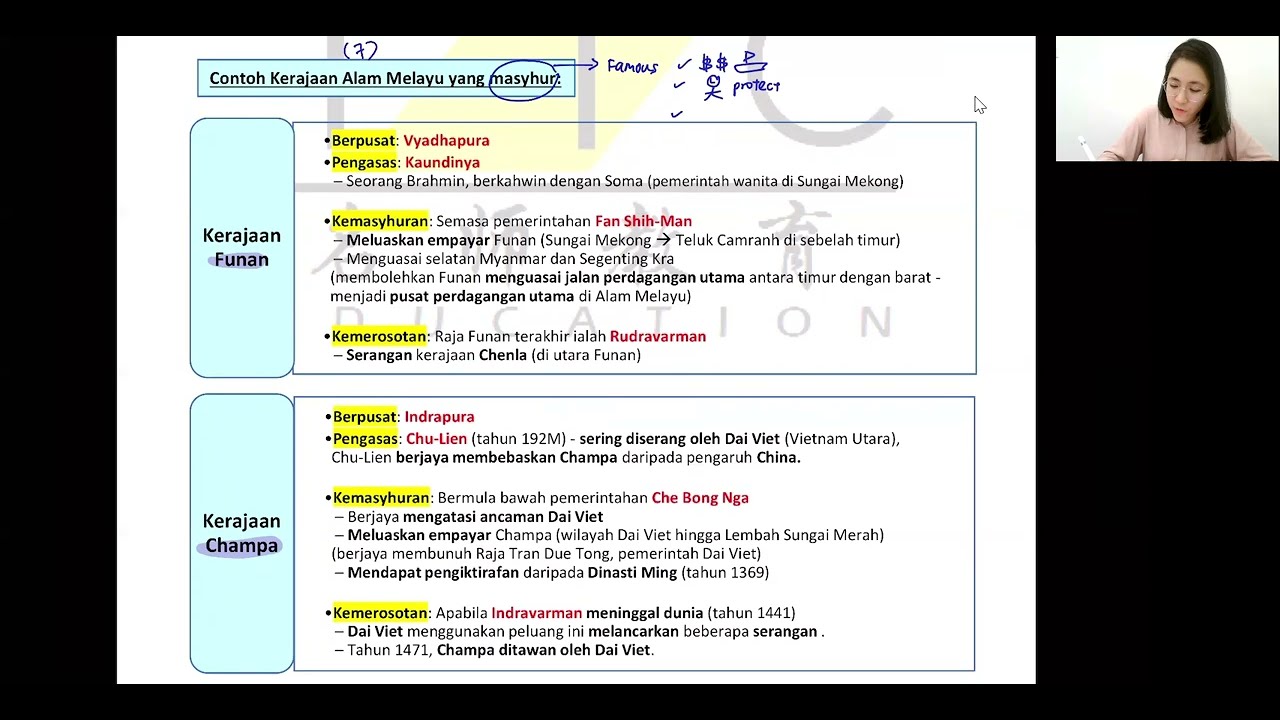 (7)
Contoh Kerajaan Alam Melayu yang masyhur:
Famous ✓ $$
✓ protect
✓
Kerajaan
Funan
•Berpusat: Vyadhapura
•Pengasas: Kaundinya
– Seorang Brahmin, berkahwin dengan Soma (pemerintah wanita di Sungai Mekong)
•Kemasyhuran: Semasa pemerintahan Fan Shih-Man
– Meluaskan empayar Funan (Sungai Mekong → Teluk Camranh di sebelah timur)
– Menguasai selatan Myanmar dan Segenting Kra
(membolehkan Funan menguasai jalan perdagangan utama antara timur dengan barat -
menjadi pusat perdagangan utama di Alam Melayu)
•Kemerosotan: Raja Funan terakhir ialah Rudravarman
– Serangan kerajaan Chenla (di utara Funan)
名师教育
EDUCATION
Kerajaan
Champa
•Berpusat: Indrapura
•Pengasas: Chu-Lien (tahun 192M) - sering diserang oleh Dai Viet (Vietnam Utara),
Chu-Lien berjaya membebaskan Champa daripada pengaruh China.
•Kemasyhuran: Bermula bawah pemerintahan Che Bong Nga
– Berjaya mengatasi ancaman Dai Viet
– Meluaskan empayar Champa (wilayah Dai Viet hingga Lembah Sungai Merah)
(berjaya membunuh Raja Tran Due Tong, pemerintah Dai Viet)
– Mendapat pengiktirafan daripada Dinasti Ming (tahun 1369)
•Kemerosotan: Apabila Indravarman meninggal dunia (tahun 1441)
– Dai Viet menggunakan peluang ini melancarkan beberapa serangan .
– Tahun 1471, Champa ditawan oleh Dai Viet.